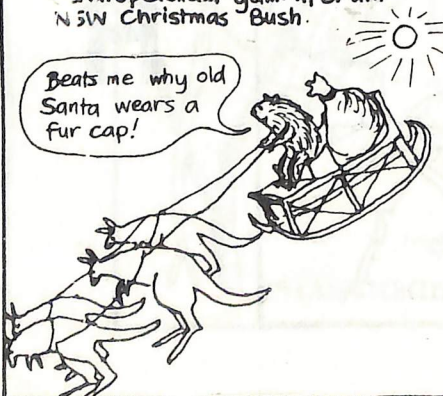 NSW Christmas Bush.
Beats me why old
Santa wears a
fur cap!